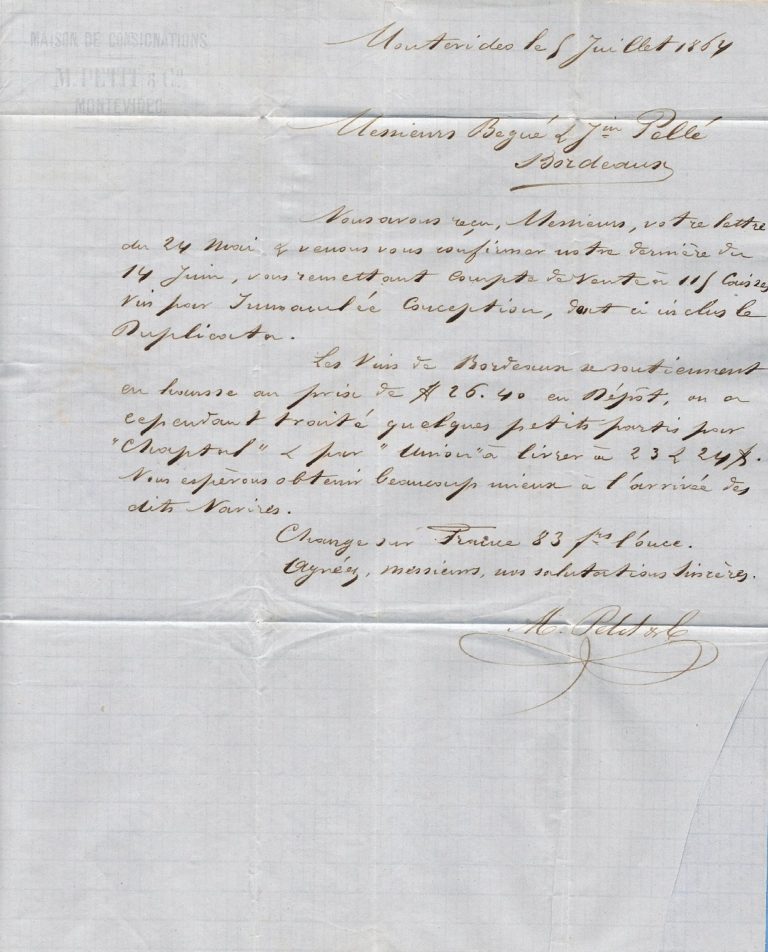 MAISON DE CONSIGNATIONS
M. PETIT & Cie
MONTEVIDEO
Montevideo le 5 Juillet 1864
Messieurs Begué & Jin Pellé
Bordeaux
Nous avons reçu, Messieurs, votre lettre
du 24 Mai & venons vous confirmer notre dernière du
14 Juin, vous remettant Compte de Vente à 115 Caisses
Vin par Immaculée Conception, dont ci inclus le
Duplicata.
Les Vins de Bordeaux se soutiennent
en hausse au prix de $ 26.40 en Dépôt, on a
cependant traité quelques petits partis par
"Chaptal" & par "Union" à livrer à 23 & 24 $.
Nous espèrons obtenir beaucoup mieux à l'arrivée des
dits Navires.
Change sur France 83 frs l'once.
Agréez, messieurs, nos salutations sincères.
M. Petit & C